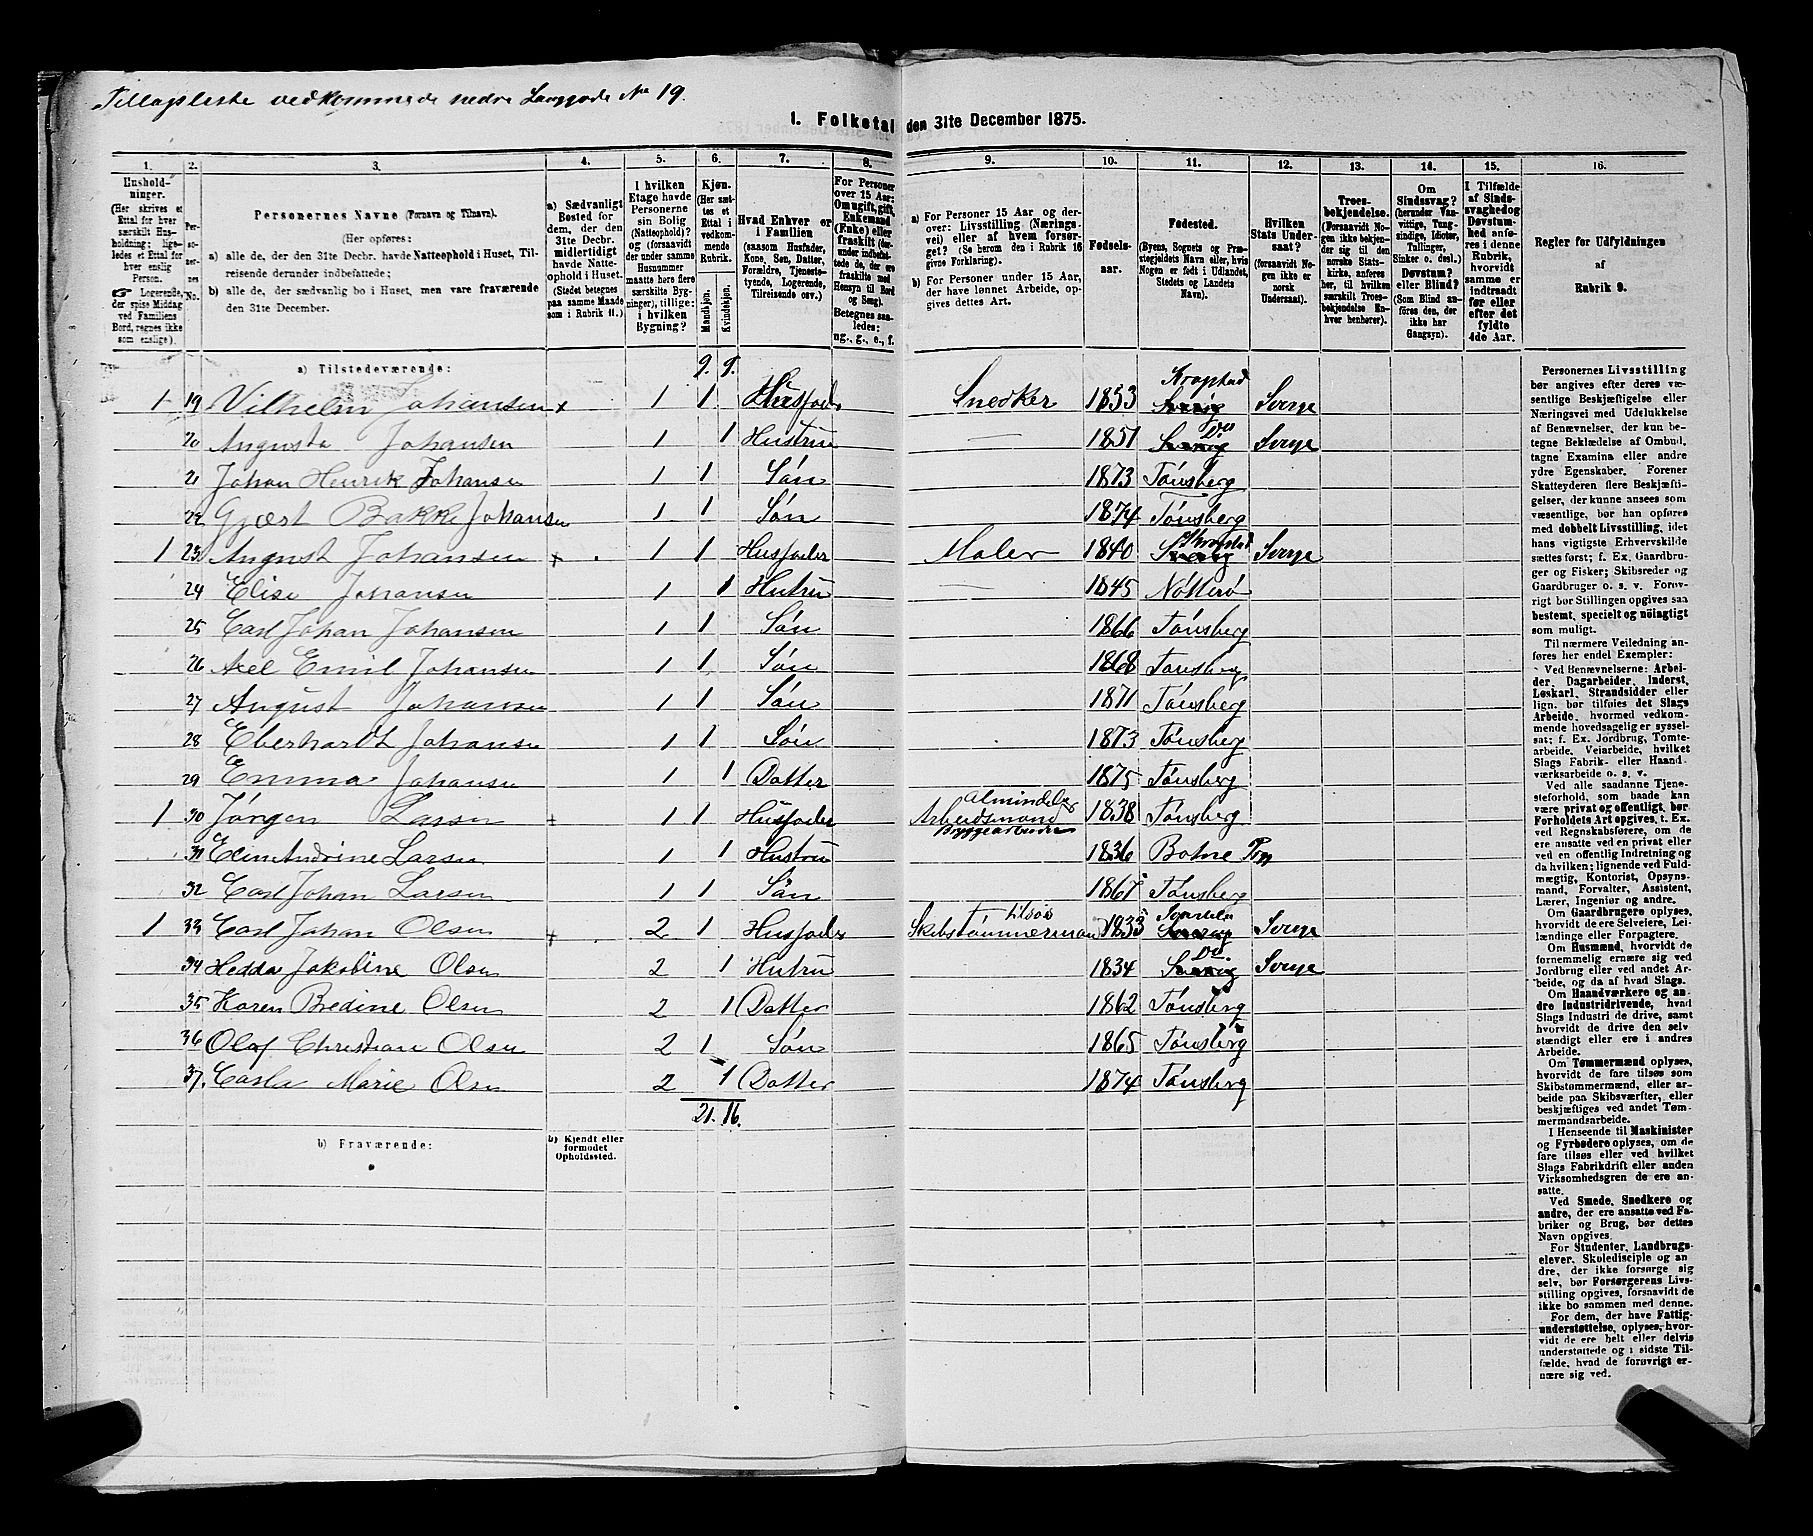 Tillægsliste vedkommende nedre Langgade No 19.
1. Folketal den 31te December 1875.
1. 2. 3. 4. 5. 6. 7. 8. 9. 10. 11. 12. 13. 14. 15. 16.
Husholdninger. (Her skrives et Ettal for hver særskilt Husholdning; ligeledes et Ettal for hver enslig Person. Logerende, der spise Middag ved Familiens Bord, regnes ikke som enslige).
Personernes No.
Personernes Navne (Fornavn og Tilnavn).
(Her opføres:
a) alle de, der den 31te Decbr. havde Natteophold i Huset, Tilreisende derunder indbefattede;
b) alle de, der sædvanlig bo i Huset, men vare fraværende den 31te December.
a) Sædvanligt Bosted for dem, der den 31te Decbr. midlertidigt havde Natteophold i Huset. (Stedet betegnes paa samme Maade som i Rubrik 11.)
I hvilken Etage havde Personerne sin Bolig (Natteophold)? og (forsaavidt der under samme Husnummer maatte høre flere særskilte Bygninger), tillige: i hvilken Bygning?
Kjøn. (Her sættes et Ettal i vedkommende Rubrik. Mandkjøn. Kvindekjøn.
Hvad Enhver er i Familien (saasom Husfader, Kone, Søn, Datter, Forældre, Tjenestetydende, Logerende, Tilreisende osv.)
For Personer over 15 Aar: Om ugift, gift, Enkemand (Enke) eller fraskilt (derunder indbefattede de, der ere fraskilte med Hensyn til Bord og Seng). Betegnes saaledes: ug., g., e., f.
a) For Personer 15 Aar og derover: Livsstilling (Næringsvei) eller af hvem forsørget? (Se herom den i Rubrik 16 givne Forklaring).
b) For Personer under 15 Aar, der have lønnet Arbeide, opgives dettes Art.
Fødselsaar.
Fødested. (Byens, Sognets og Præstegjeldets Navn eller, hvis Nogen er født i Udlandet, Stedets og Landets Navn).
Hvilken Stats Undersaat? (forsaavidt Nogen ikke er norsk Undersaat).
Troesbekjendelse. (Forsaavidt Nogen ikke bekjender sig til den norske Statskirke, anføres her, til hvilken særskilt Troesbekjendelse Enhver henhører).
Om Sindssvag? (herunder Vanvittige, Tungsindige, Idioter, Tullinger, Sinker o. desl.) Døvstum? eller Blind? (Som Blind anføres den, der ikke har Gangsyn).
I Tilfælde af Sindssvaghed og Døvstumhed anføres i denne Rubrik, hvorvidt samme er indtraadt før eller efter det fyldte 4de Aar.
Regler for Udfyldningen af Rubrik 9.
a) Tilstedeværende: 9. 9.
1 19 Vilhelm Johansen x 1 1 Husfader Snedker 1833 Sverig Krogstad Sverge
20 Augusta Johansen 1 1 Hustru — 1851 Sverig Do Sverge
21 Johan Henrik Johansen 1 1 Søn 1873 Tønsberg
22 Gjært Bakke Johansen 1 1 Søn 1874 Tønsberg
1 23 August Johansen x 1 1 Husfader Maler 1840 Sverig Krogstad Sverge
24 Elise Johansen 1 1 Hutru — 1845 Nøtterø
25 Carl Johan Johansen 1 1 Søn 1866 Tønsberg
26 Axel Emil Johansen 1 1 Søn 1868 Tønsberg
27 August Johansen 1 1 Søn 1871 Tønsberg
28 Eberhardt Johansen 1 1 Søn 1873 Tønsberg
29 Emma Johansen 1 1 Datter 1875 Tønsberg
1 30 Jørgen Larsen + 1 1 Husfader Almindelig Arbeidsmand Bryggearbeider 1838 Tønsberg
31 Elin Andrine Larsen 1 1 Hustru 1836 Botne
32 Carl Johan Larsen 1 1 Søn 1867 Tønsberg
1 33 Carl Johan Olsen + 2 1 Husfader Skibstømmermand tilsøs 1833 Sverig Sverge
34 Hedda Jakobine Olsen 2 1 Hutru 1834 Sverig Do. Sverge
35 Karen Bredine Olsen 2 1 Datter 1862 Tønsberg
36 Olaf Christian Olsen 2 1 Søn 1865 Tønsberg
37. Carla Marie Olsen 2 1 Datter 1874 Tønsberg
21. 16.
b) Fraværende:
b) Kjendt eller formodet Opholdssted.
Personernes Livsstilling
bør angives efter deres væsentlige
Beskjæftigelse eller
Næringsvei med Udelukkelse
af Benævnelser, der kun betegne
Beklædelse af Ombud,
tagne Examina eller andre
ydre Egenskaber. Forener
Skatteyderen flere Beskjæftigelser,
der kunne ansees som
væsentlige, bør han opføres
med dobbelt Livsstilling, idet
hans vigtigste Erhvervskilde
sættes først; f. Ex. Gaardbruger
og Fisker; Skibsreder og
Gaardbruger o. s. v. Forøvrigt
bør Stillingen opgives saa
bestemt, specielt og nöiagtigt
som muligt.
Til nærmere Veiledning anføres
her endel Exempler:
Ved Benævnelserne: Arbeider,
Dagarbeider, Inderst,
Løskarl, Strandsidder eller
lign. bør tilføies det Slags
Arbeide, hvormed vedkommende
hovedsagelig er sysselsat;
f. Ex. Jordbrug, Tomtearbeide,
Veiarbeide, hvilket
Slags Fabrik- eller Haandværksarbeide
o. s. v.
Ved alle saadanne Tjenesteforhold,
som baade kan
være privat og offentligt, bør
Forholdets Art opgives, t. Ex.
ved Regnskabsførere, om de
ere ansatte ved en privat eller
ved en offentlig Indretning og
da hvilken; lignende ved Fuldmægtig,
Kontorist, Opsynsmand,
Forvalter, Assistent,
Lærer, Ingeniør og andre.
Om Gaardbrugere oplyses,
hvorvidt de ere Selveiere, Leilændinge
eller Forpagtere.
Om Husmænd, hvorvidt de
fornemmelig ernære sig ved
Jordbrug eller ved andet Arbeide,
og da af hvad Slags.
Om Haandværkere og andre
Industridrivende, hvad
Slags Industri de drive, samt
hvorvidt de drive den selvstændigt
eller ere i andres
Arbeide.
Om Tømmermænd oplyses,
hvorvidt de fare tilsøs som
Skibstømmermænd, eller arbeide
paa Skibsværfter, eller
beskjæftiges ved andet Tømmermandsarbeide.
I Henseende til Maskinister
og Fyrbødere oplyses, om de
fare tilsøs eller ved hvilket
Slags Fabrikdrift eller anden
Virksomhedsgren de ere ansatte.
Ved Smede, Snedkere og
andre, der ere ansatte ved Fabriker
og Brug, bør dettes
Navn opgives.
For Studenter, Landbrugselever,
Skoledisciple og andre,
der ikke forsørge sig
selv, bør Forsørgerens Livsstilling
opgives, forsaavidt de
ikke bo sammen med denne.
For dem, der have Fattigunderstøttelse,
oplyses, hvorvidt
de ere helt eller delvis
understøttede og i sidste Tilfælde,
hvad de forøvrigt ernære
sig ved.